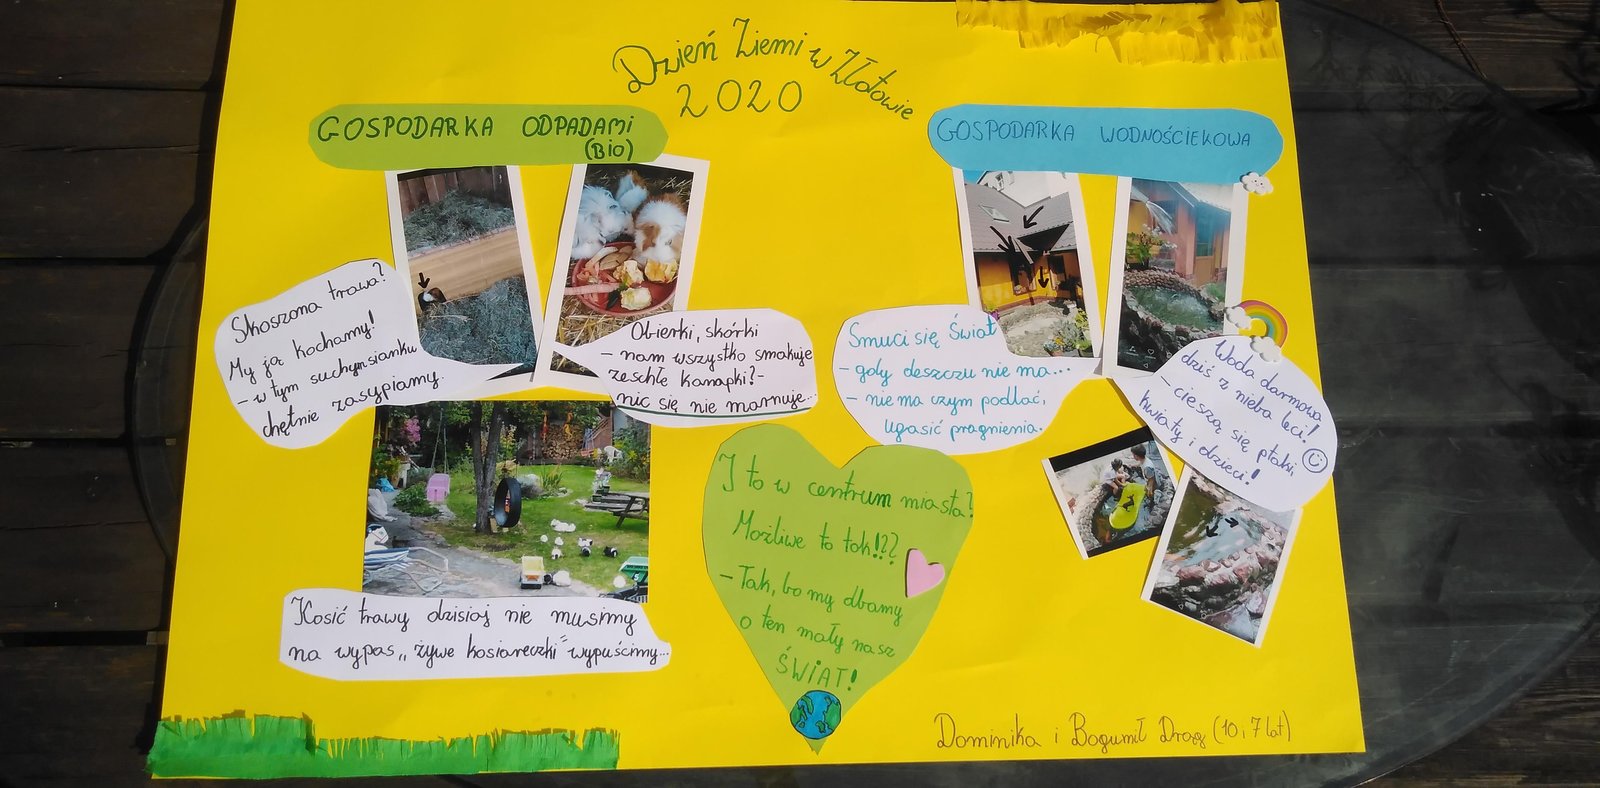 Dzień Ziemi w Złotowie
2020
GOSPODARKA ODPADAMI
(BIO)
Skoszona trawa?
My ją kochamy!
- w tym suchym sianku
chętnie zasypiamy.
Obierki, skórki
- nam wszystko smakuje
zeschłe kanapki? -
nic się nie marnuje...
Kosić trawy dzisiaj nie musimy
na wypas „żywe kosiareczki" wypuścimy...
GOSPODARKA WODNOŚCIEKOWA
Smuci się Świat
- gdy deszczu nie ma...
- nie ma czym podlać,
ugasić pragnienia.
Woda darmowa
dziś z nieba leci!
- cieszą się ptaki,
kwiaty i dzieci!
I to w centrum miasta?
Możliwe to tak!??
- Tak, bo my dbamy
o ten mały nasz
ŚWIAT!
Dominika i Bogumił (10 i 7 lat)